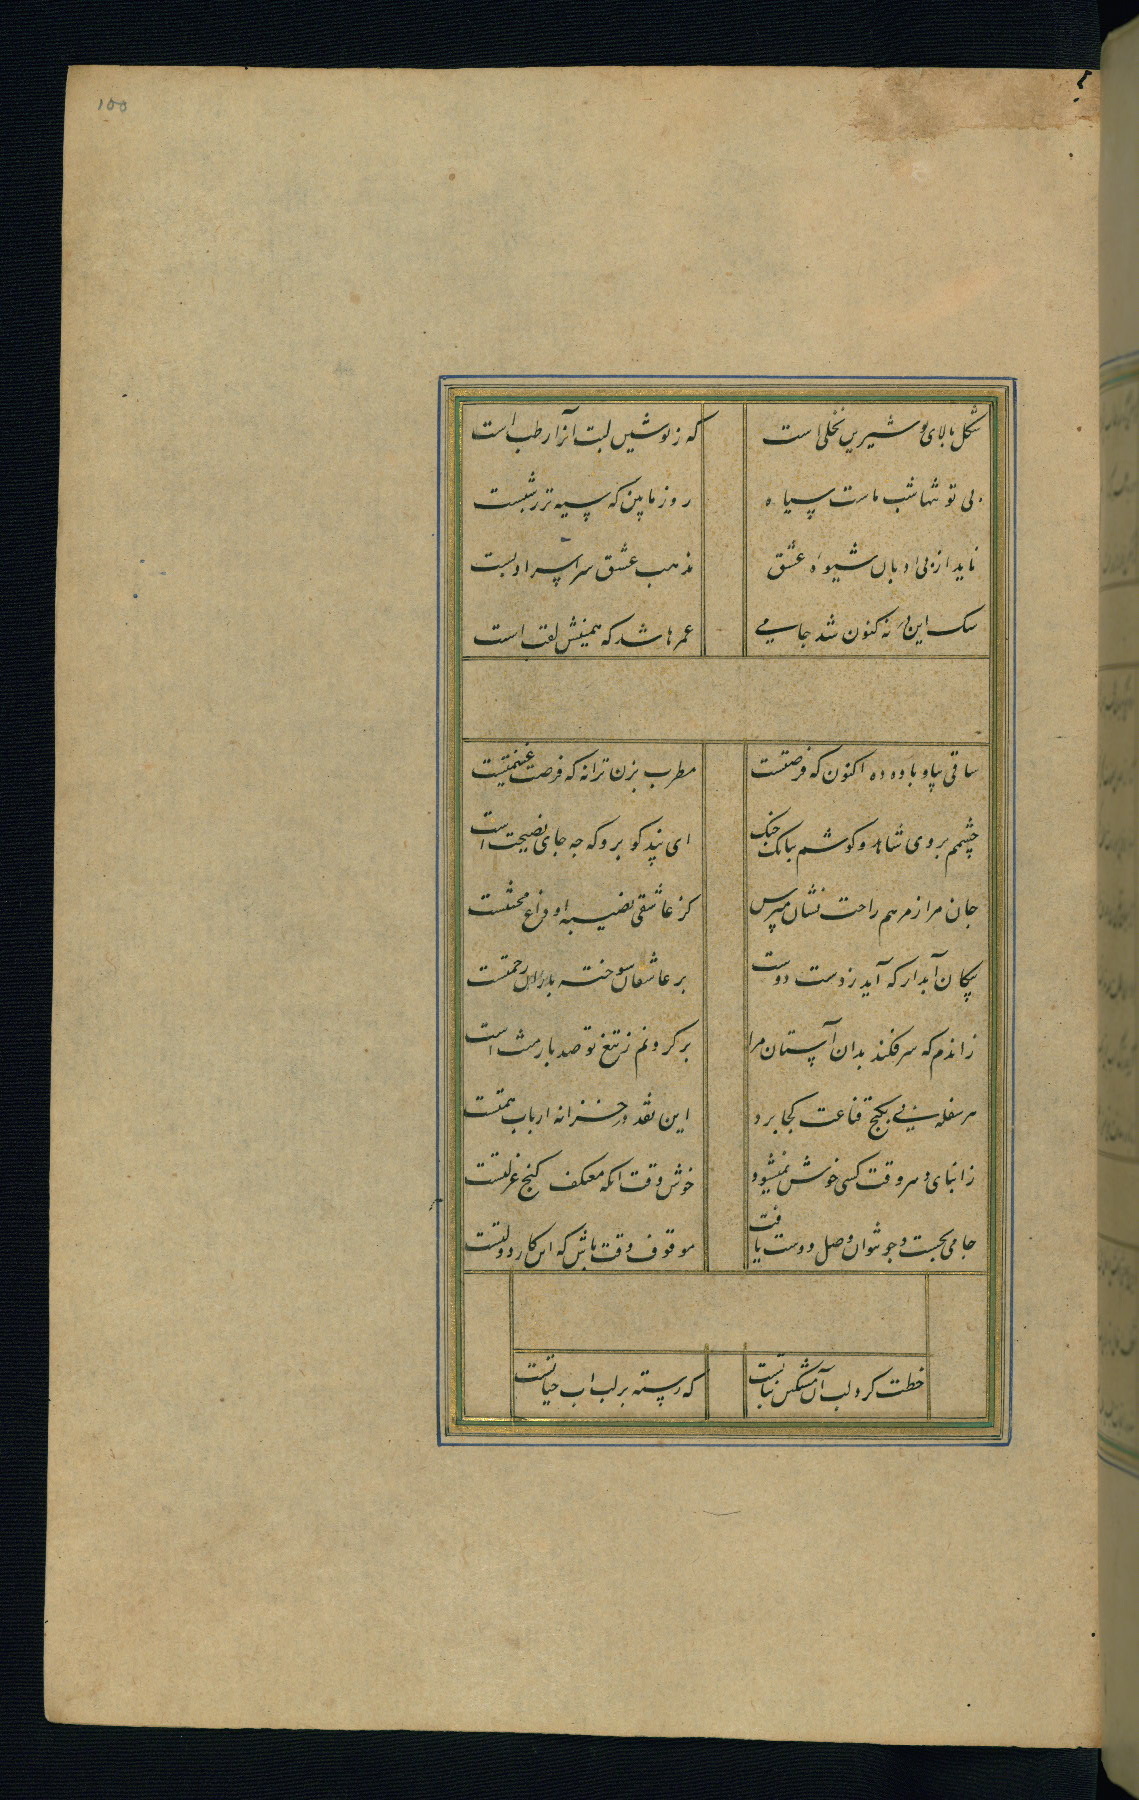 ۱۵۵
شکل بالای تو شیرین نخلی است
که ز نوشین لبت آنرا رطب است
بی تو تنها شب ماست سیاه
روز ما بین که سیه تر ز شبست
ناید از بی ادبان شیوه عشق
مذهب عشق سراسر ادبست
سک این در نه کنون شد جامی
عمرها شد که همینش لقب است
ساقی بیا و باده ده اکنون که فرصتست
مطرب بزن ترانه که فرصت غنیمتست
چشمم بروی شاهد و کوشم ببانک چنک
ای پند کو برو که جه جای نصیحت است
جان مرا ز مرهم راحت نشان مپرس
کز عاشقی نصیبه او داغ محنتست
پیکان آبدار که آید ز دست دوست
بر عاشقان سوخته باران رحمتست
زاندم که سر فکند بدان آستان مرا
بر کردنم ز تیغ تو صد بار منت است
هر سفله پی بکنج قناعت کجا برد
این نقد در خزانه ارباب همتست
زابنای دهر وقت کسی خوش نمیشود
خوش وقت انکه معتکف کنج عزلتست
جامی بجست و جو نتوان وصل دوست یافت
موقوف وقت باش که این کار دولتست
خطت کرد لب آن مشکین نباتست
که رسته بر لب اب حیاتست